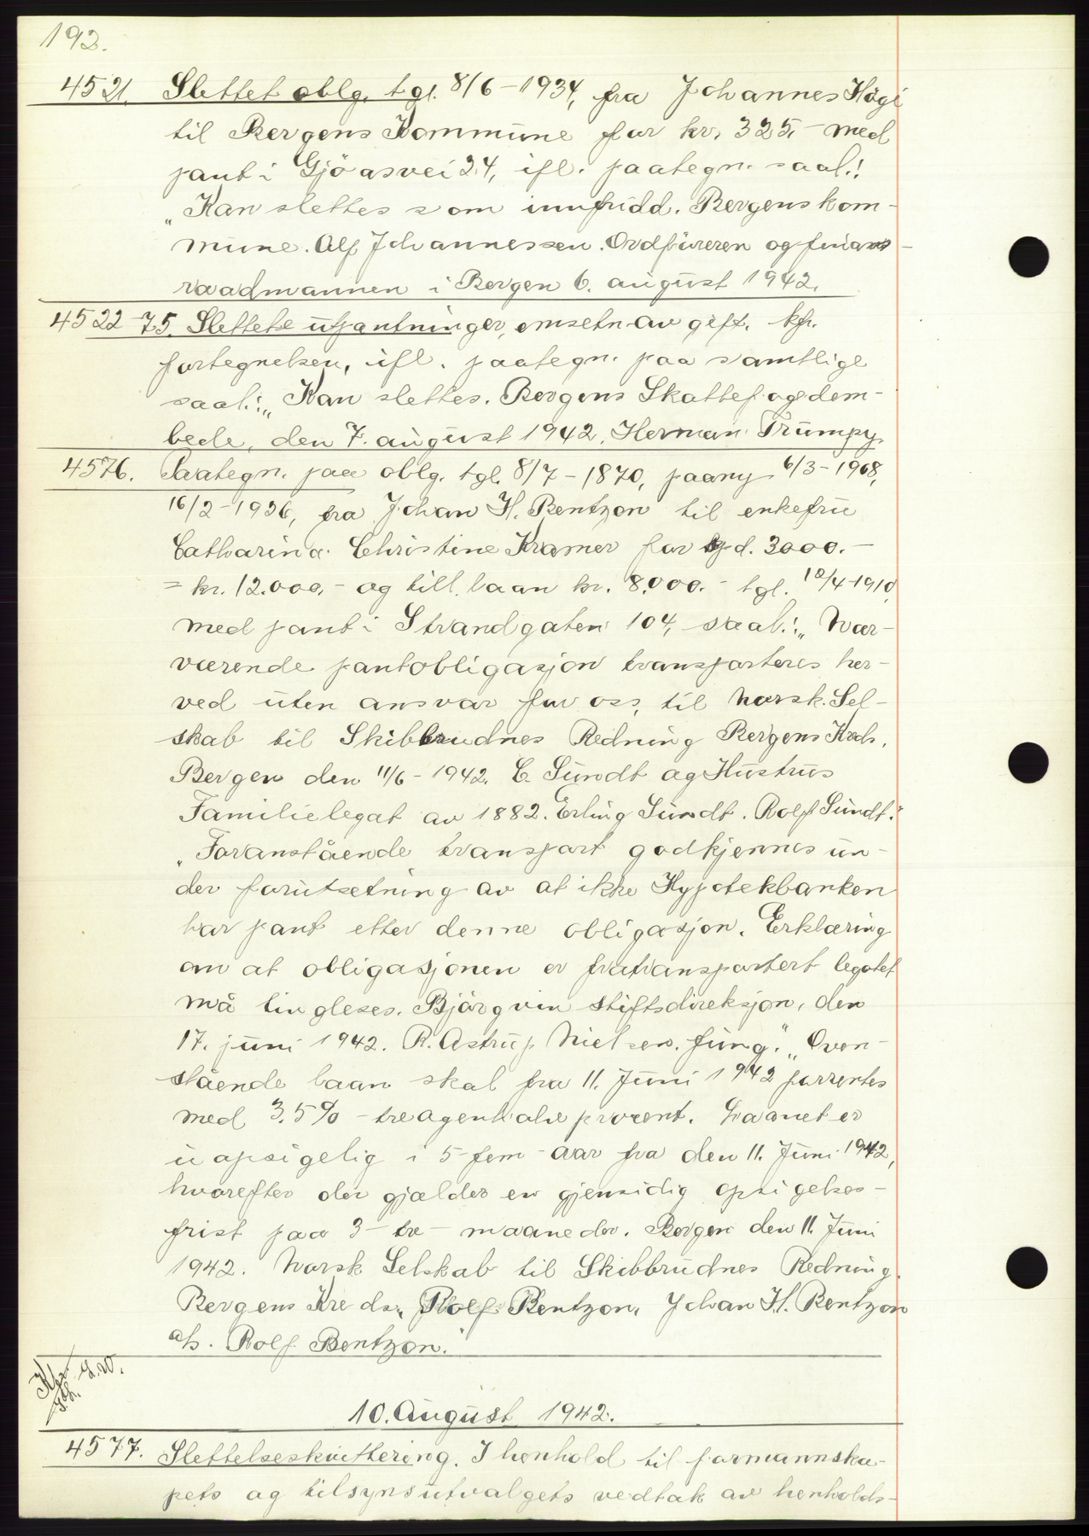 192.
4521. Slettet oblg. tgl. 8/6-1934, fra Johannes Høgi
til Bergens Kommune for kr. 325,- med
pant i Gjøasvei 24, ifl. paategn. saal.:
„Kan slettes som innfridd. Bergens kom-
mune. Alf Johannessen. Ordføreren og finans-
raadmannen i Bergen 6. august 1942.
4522-75. Slettete utpantninger, omsetn.av gift. kfr.
fortegnelsen, ifl. paategn. paa samtlige
saal.: „Kan slettes. Bergens Skattefogdem-
bede, den 7. august 1942. Herman Trumpy
4576. Paategn. paa oblg. tgl. 8/7-1870, paany 6/3-1908,
16/2-1926, fra Johan H. Bentzon til enkefru
Catharina Christine Kramer for spd. 3000.-
= kr. 12.000,- og till. laan kr. 8.000.- tgl. 18/4-1910,
med pant i Strandgaten 104, saal.: „Nær-
værende pantobligasjon transporteres her-
ved uten ansvar for oss, til Norsk. Sel-
skab til Skibbrudnes Redning Bergens Kreds.
Bergen den 11/6-1942. C. Sundt og Hustrus
Familielegat av 1882. Erling Sundt. Rolf Sundt."
„Foranstående transport godkjennes un-
der forutsetning av at ikke Hypotekbanken
har pant etter denne obligasjon. Erklæring
om at obligasjonen er fratransportert legatet
må tingleses. Bjørgvin stiftsdireksjon, den
17. juni 1942. R. Astrup Nielsen. fung." „Oven-
stående laan skal fra 11. Juni 1942 forrentes
med 3.5% - treogenhalv procent. Laanet er
uopsigelig i 5-fem-aar fra den 11. Juni 1942,
hvorefter der gjælder en gjensidig opsigelses-
frist paa 3-tre-maaneder. Bergen den 11. Juni
1942. Norsk Selskab til Skibbrudnes Redning.
Bergens Kreds. Rolf Bentzon. Johan H. Bentzon
e/h. Rolf Bentzon."
10. August 1942.
4577. Slettelseskvittering. I henhold til formannska-
pets og tilsynsutvalgets vedtak av henholds-